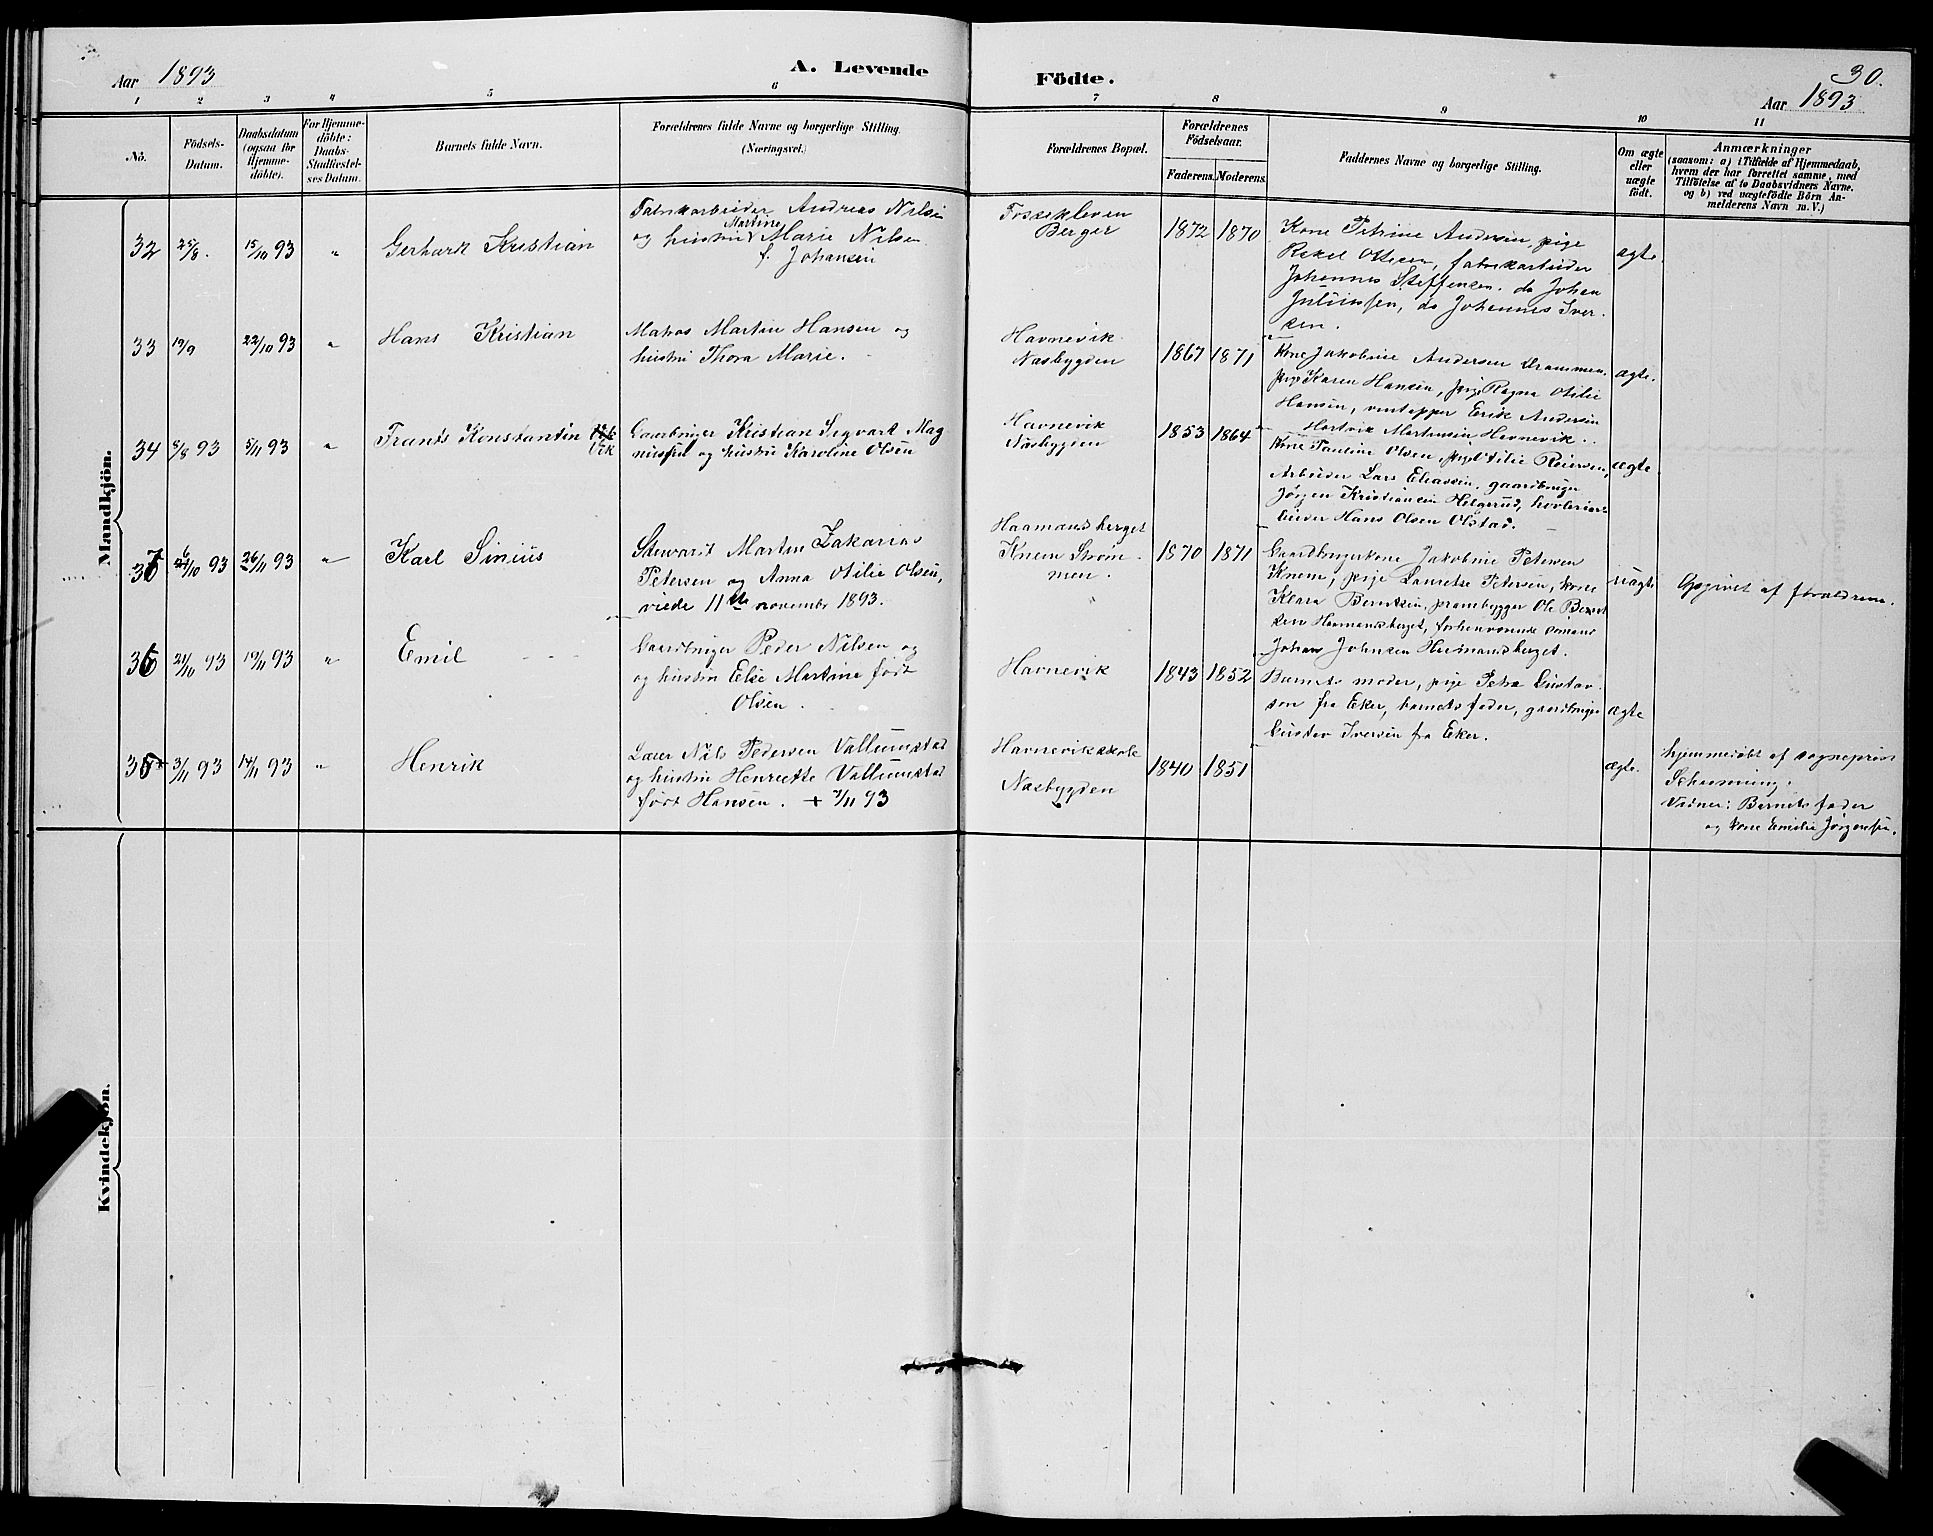 Aar 1893
A. Levende
Födte.
30.
Aar 1893
1 2 3 4 5 6 7 8 9 10 11
No.
Födsels-
Datum.
Daabsdatum
(ogsaa for
Hjemme-
döbte).
For Hjemme-
döbte:
Daabs-
Stadfæstel-
ses Datum.
Barnets fulde Navn.
Forældrenes fulde Navne og borgerlige Stilling.
(Næringsvei.)
Forældrenes Bopæl.
Forældrenes
Födselsaar.
Faderens. Moderens.
Faddernes Navne og borgerlige Stilling.
Om ægte
eller
uægte
født.
Anmærkninger
(saasom: a) i Tilfælde af Hjemmedaab,
hvem der har forrettet samme, med
Tilföielse af to Daabsvidners Navne,
og b) ved uægtefödte Börn An-
melderens Navn m. V.)
Mandkjön.
32 25/8. 15/10 93 " Gerhark Kristian
Fabrikarbeider Andreas Nilsen
Martine
og hustru Marie Nilsen
f. Johansen
Fossekleven
Berger
1872 1870
Kone Petrine Andersen, pige
Rekel Ottesen, fabrikarbeider
Johannes Steffensen. do Johan
Juliussen, do Johannes Iver-
sen.
ægte.
33 19/9 22/10 93 " Hans Kristian
Matros Martin Hansen og
hustru Thora Marie.
Havnevik
Næsbygden
1867 1871
Kone Jakobine Andersen Drammen.
pige Karen Hansen, pige Ragna Otilie
Hansen, Erik Andersen
Hartvik Martinsen Havnevik.
ægte.
34 5/8 93 5/11 93 " Frants Konstantin
Gaardbruger Kristian Sigvart Mag
nussen og hustru Karoline Olsen
Havnevik
Næsbygden
1853 1864
Kone Pauline Olsen, pige Otilie Reiersen,
Arbeider Lars Eliassen, gaardbruger
Jørgen Kristiansen Helgerud, høvleriar-
beider Hans Olsen Olstad.
ægte
37 6/10 93 26/11 93 " Karl Sinius
Stuvarit Martin Zakarias
Petersen og Anna Otilie Olsen,
viede 11te november 1893.
Haamansberget
Knem Strøm-
men.
1870 1871
Gaardbrugerkone Jakobine Petersen
Knem, pige Lauretse Petersen, kone
Klara Berntsen, prambygger Ole Bernt
sen Hermansberget, forhenværende sømand
Johan Johnsen Hermansberget.
uægte
Opgivet af forældrene.
36 21/10 93 19/11 93 " Emil
Gaardbruger Peder Nilsen og
og hustru Else Martine født
Olsen.
Havnevik
1843 1852
Barnets moder, pige Petra Gustav-
sen fra Eker, barnets fader, gaardbruger
Gustav Iversen fra Eker.
ægte
35 3/11 93 14/11 93 " Henrik
Lærer Nils Pedersen Vallumstad
og hustru Henriette Vallumstad
født Hansen. + 7/11 93
Havnevikskole
Næsbygden
1840 1851
ægte.
hjemmedøbt af sogneprest
Schanning.
Vidner: Barnets fader
og kone Emilie Jørgensen.
Kvindekjön.